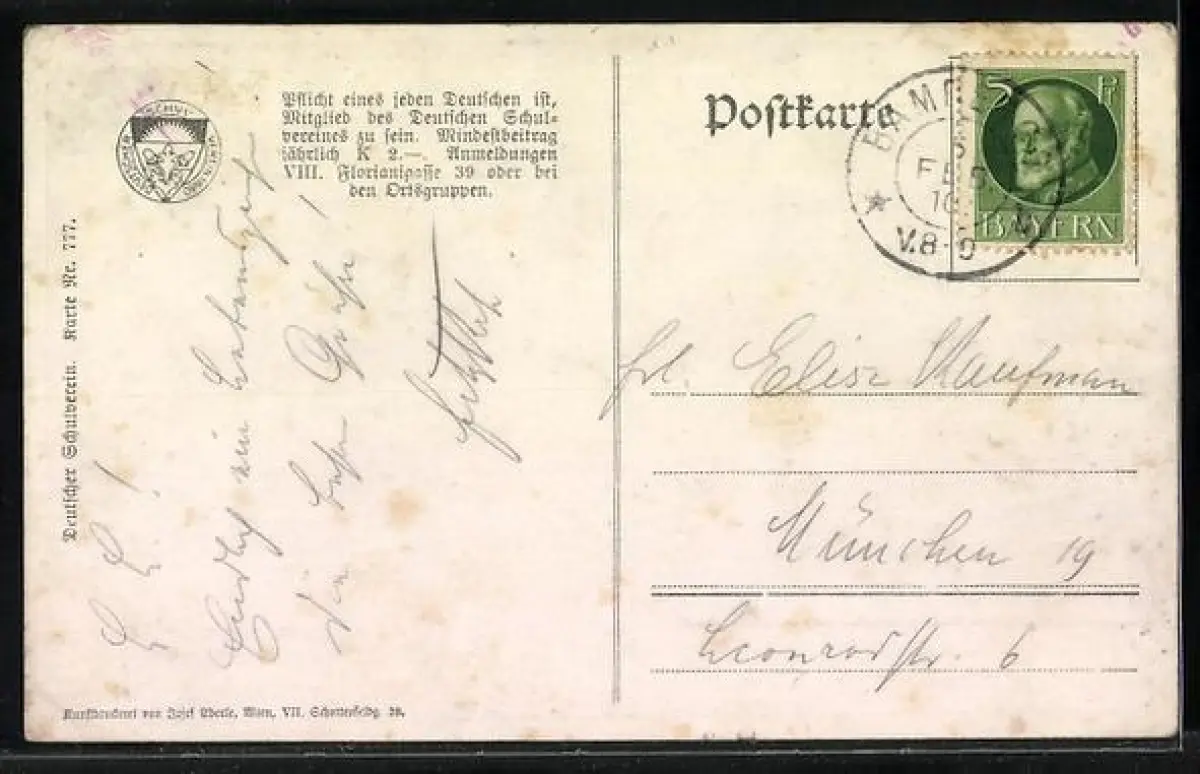 Pflicht eines jeden Deutschen ist,
Mitglied des Deutschen Schul-
vereines zu sein. Mindestbeitrag
jährlich K 2.—. Anmeldungen
VIII. Florianigasse 39 oder bei
den Ortsgruppen.
Deutscher Schulverein. Karte Nr. 777.
L. L. !
Endlich ein
Dir
Grüße !
Kunstdruckerei von Josef Eberle, Wien, VII. Schottenfeldg. 38.
Postkarte
5 Pf
BAYERN
BAMBE
FEB
V.8-9
Frl. Elise Kaufman
München 19
Leonrodstr. 6